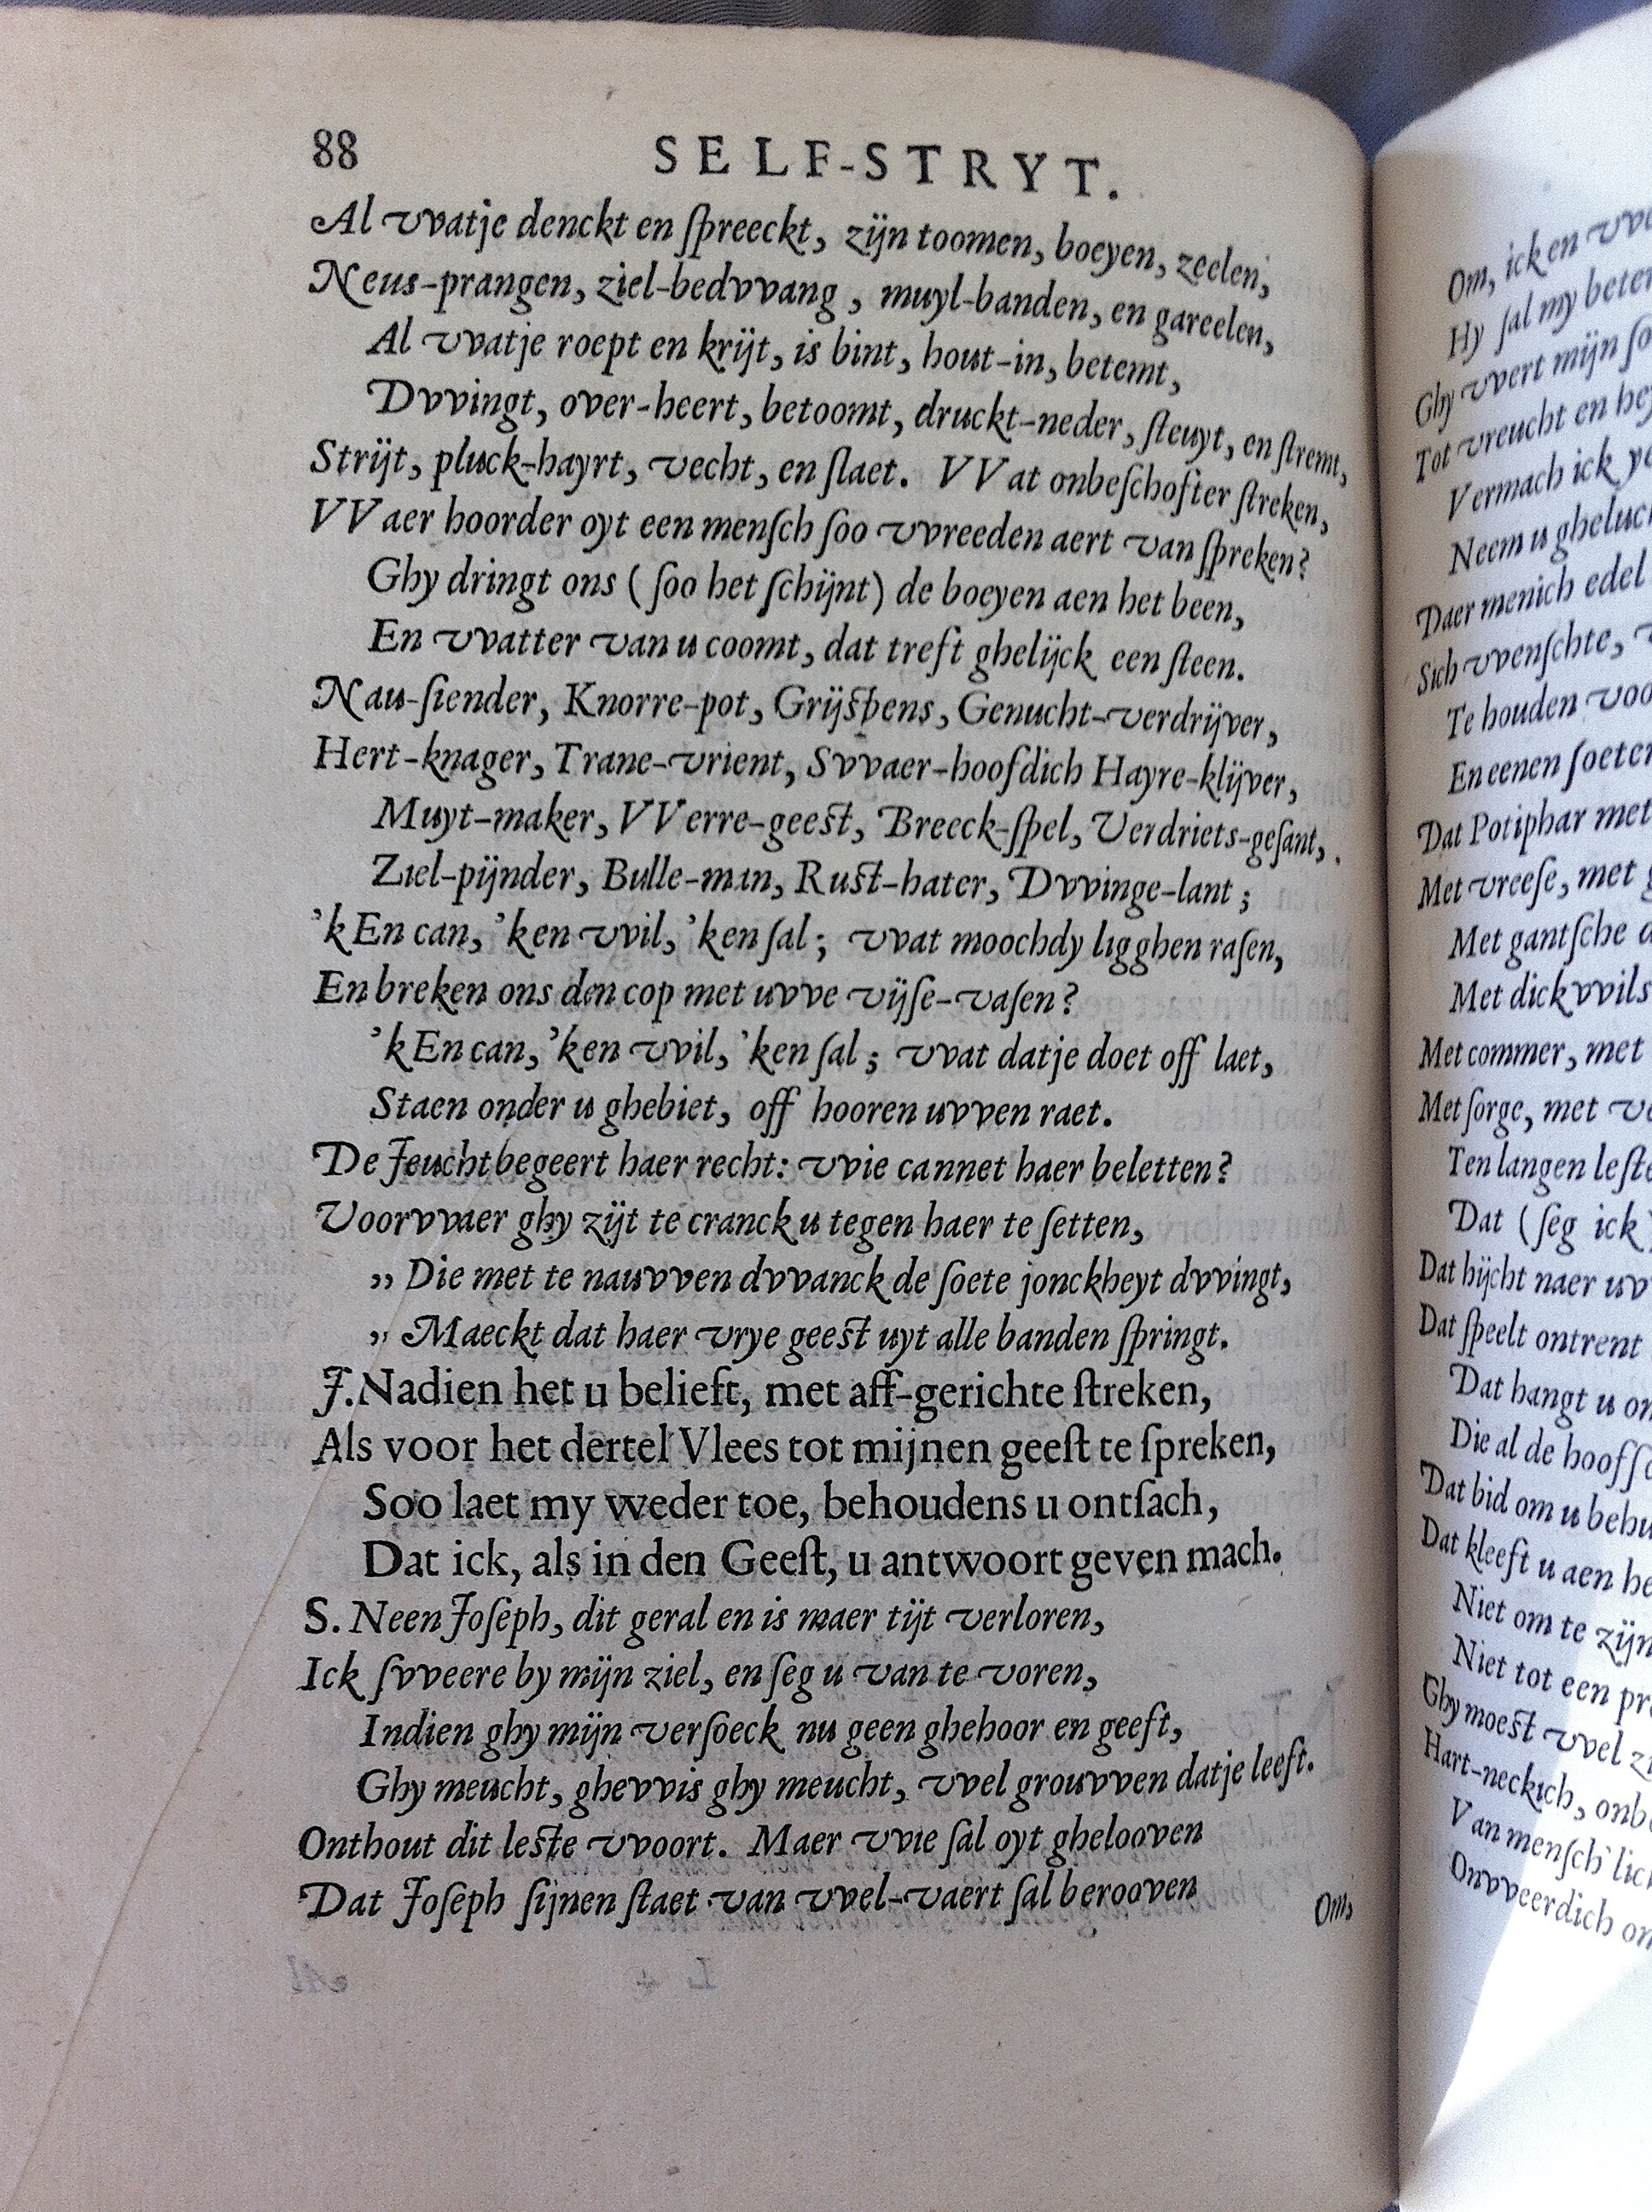 88 SELF-STRYT.
Al vvatje denckt en ſpreeckt, zijn toomen, boeyen, zeelen,
Neus-prangen, ziel-bedvvang, muyl-banden, en gareelen,
Al vvatje roept en krijt, is bint, hout-in, betemt,
Dvvingt, over-heert, betoomt, druckt-neder, ſteuyt, en ſtremt,
Strijt, pluck-hayrt, vecht, en ſlaet. VVat onbeſchofter ſtreken,
VVaer hoorder oyt een menſch ſoo vvreeden aert van ſpreken?
Ghy dringt ons (ſoo het ſchijnt) de boeyen aen het been,
En vvatter van u coomt, dat treft ghelijck een ſteen.
Nau-ſiender, Knorre-pot, Grijſpens, Genucht-verdrijver,
Hert-knager, Trane-vrient, Svvaer-hoofdich Hayre-klijver,
Muyt-maker, VVerre-geeſt, Breeck-ſpel, Verdriets-geſant,
Ziel-pijnder, Bulle-man, Ruſt-hater, Dvvinge-lant;
'k En can, 'k en vvil, 'k en ſal; vvat moochdy ligghen raſen,
En breken ons den cop met uvve vijſe-vaſen?
'k En can, 'k en vvil, 'k en ſal; vvat datje doet off laet,
Staen onder u ghebiet, off hooren uvven raet.
De Jeucht begeert haer recht: vvie cannet haer beletten?
Voorvvaer ghy zijt te cranck u tegen haer te ſetten,
„ Die met te nauvven dvvanck de ſoete jonckheyt dvvingt,
„ Maeckt dat haer vrye geeſt uyt alle banden ſpringt.
J. Nadien het u belieft, met aff-gerichte ſtreken,
Als voor het dertel Vlees tot mijnen geeſt te ſpreken,
Soo laet my weder toe, behoudens u ontſach,
Dat ick, als in den Geeſt, u antwoort geven mach.
S. Neen Joſeph, dit geral en is maer tijt verloren,
Ick ſvveere by mijn ziel, en ſeg u van te voren,
Indien ghy mijn verſoeck nu geen ghehoor en geeft,
Ghy meucht, ghevvis ghy meucht, vvel grouvven datje leeft.
Onthout dit leſte vvoort. Maer vvie ſal oyt ghelooven
Dat Joſeph ſijnen ſtaet van vvel-vaert ſal berooven
Om,
Om, ick en
Hy ſal my
Ghy vvert mijn
Tot vreucht en
Vermach ick
Neem u
Daer menich edel
Sich vvenſchte,
Te houden
En eenen
Dat Potiphar met
Met vreeſe, met
Met gantſche
Met dickvvils
Met commer, met
Met ſorge, met
Ten langen
Dat (ſeg ick
Dat hijcht naer
Dat ſpeelt ontrent
Dat hangt u
Die al de
Dat bid om u
Dat kleeft u aen
Niet om te
Niet tot een
Ghy moeſt vvel
Hart-neckich,
Van
Onvveerdich